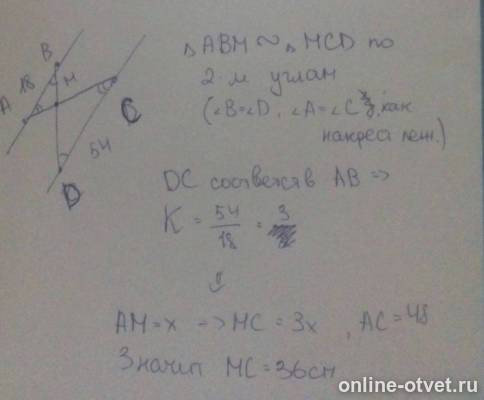 B
18
M
A
C
54
D
△ABM ~ △MCD по
2-м углам
(∠B=∠D, ∠A=∠C, как
накрест леж.)
DC соответств AB =>
K = 54/18 = 3
⇓
AM=x => MC=3x, AC=48
Значит MC=36см
online-otvet.ru